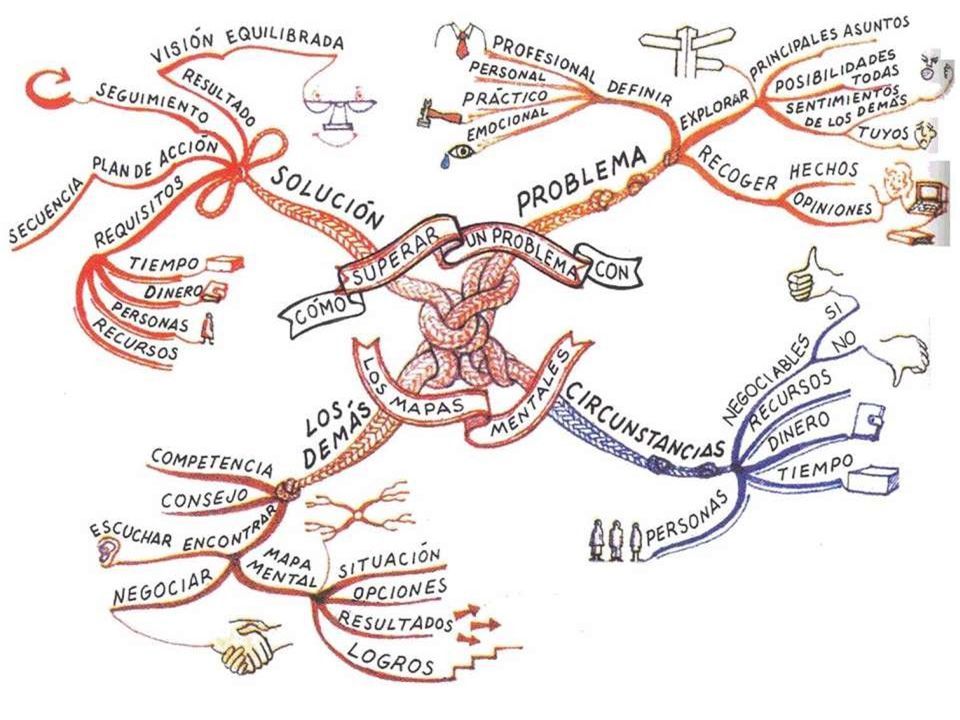 CÓMO
SUPERAR
UN PROBLEMA
CON
LOS MAPAS
MENTALES
PROBLEMA
DEFINIR
PROFESIONAL
PERSONAL
PRÁCTICO
EMOCIONAL
EXPLORAR
PRINCIPALES ASUNTOS
POSIBILIDADES
TODAS
SENTIMIENTOS
DE LOS DEMÁS
TUYOS
RECOGER
HECHOS
OPINIONES
CIRCUNSTANCIAS
NEGOCIABLES
SI
NO
RECURSOS
DINERO
TIEMPO
PERSONAS
LOS
DEMÁS
COMPETENCIA
CONSEJO
ENCONTRAR
ESCUCHAR
NEGOCIAR
MAPA
MENTAL
SITUACIÓN
OPCIONES
RESULTADOS
LOGROS
SOLUCIÓN
REQUISITOS
TIEMPO
DINERO
PERSONAS
RECURSOS
PLAN DE ACCIÓN
SECUENCIA
SEGUIMIENTO
RESULTADO
VISIÓN EQUILIBRADA